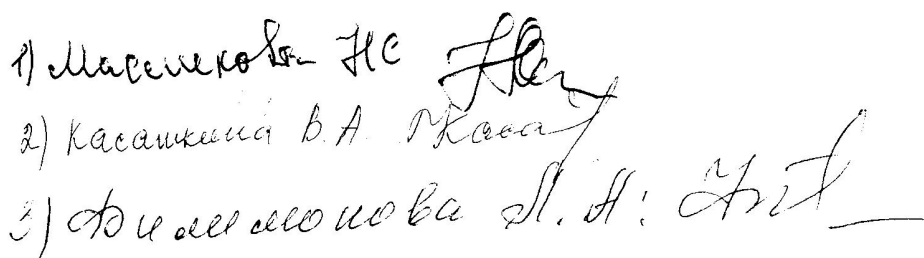 1) Масленкова НС
2) Касашкина В.А.
3) Филимонова Л.Н: